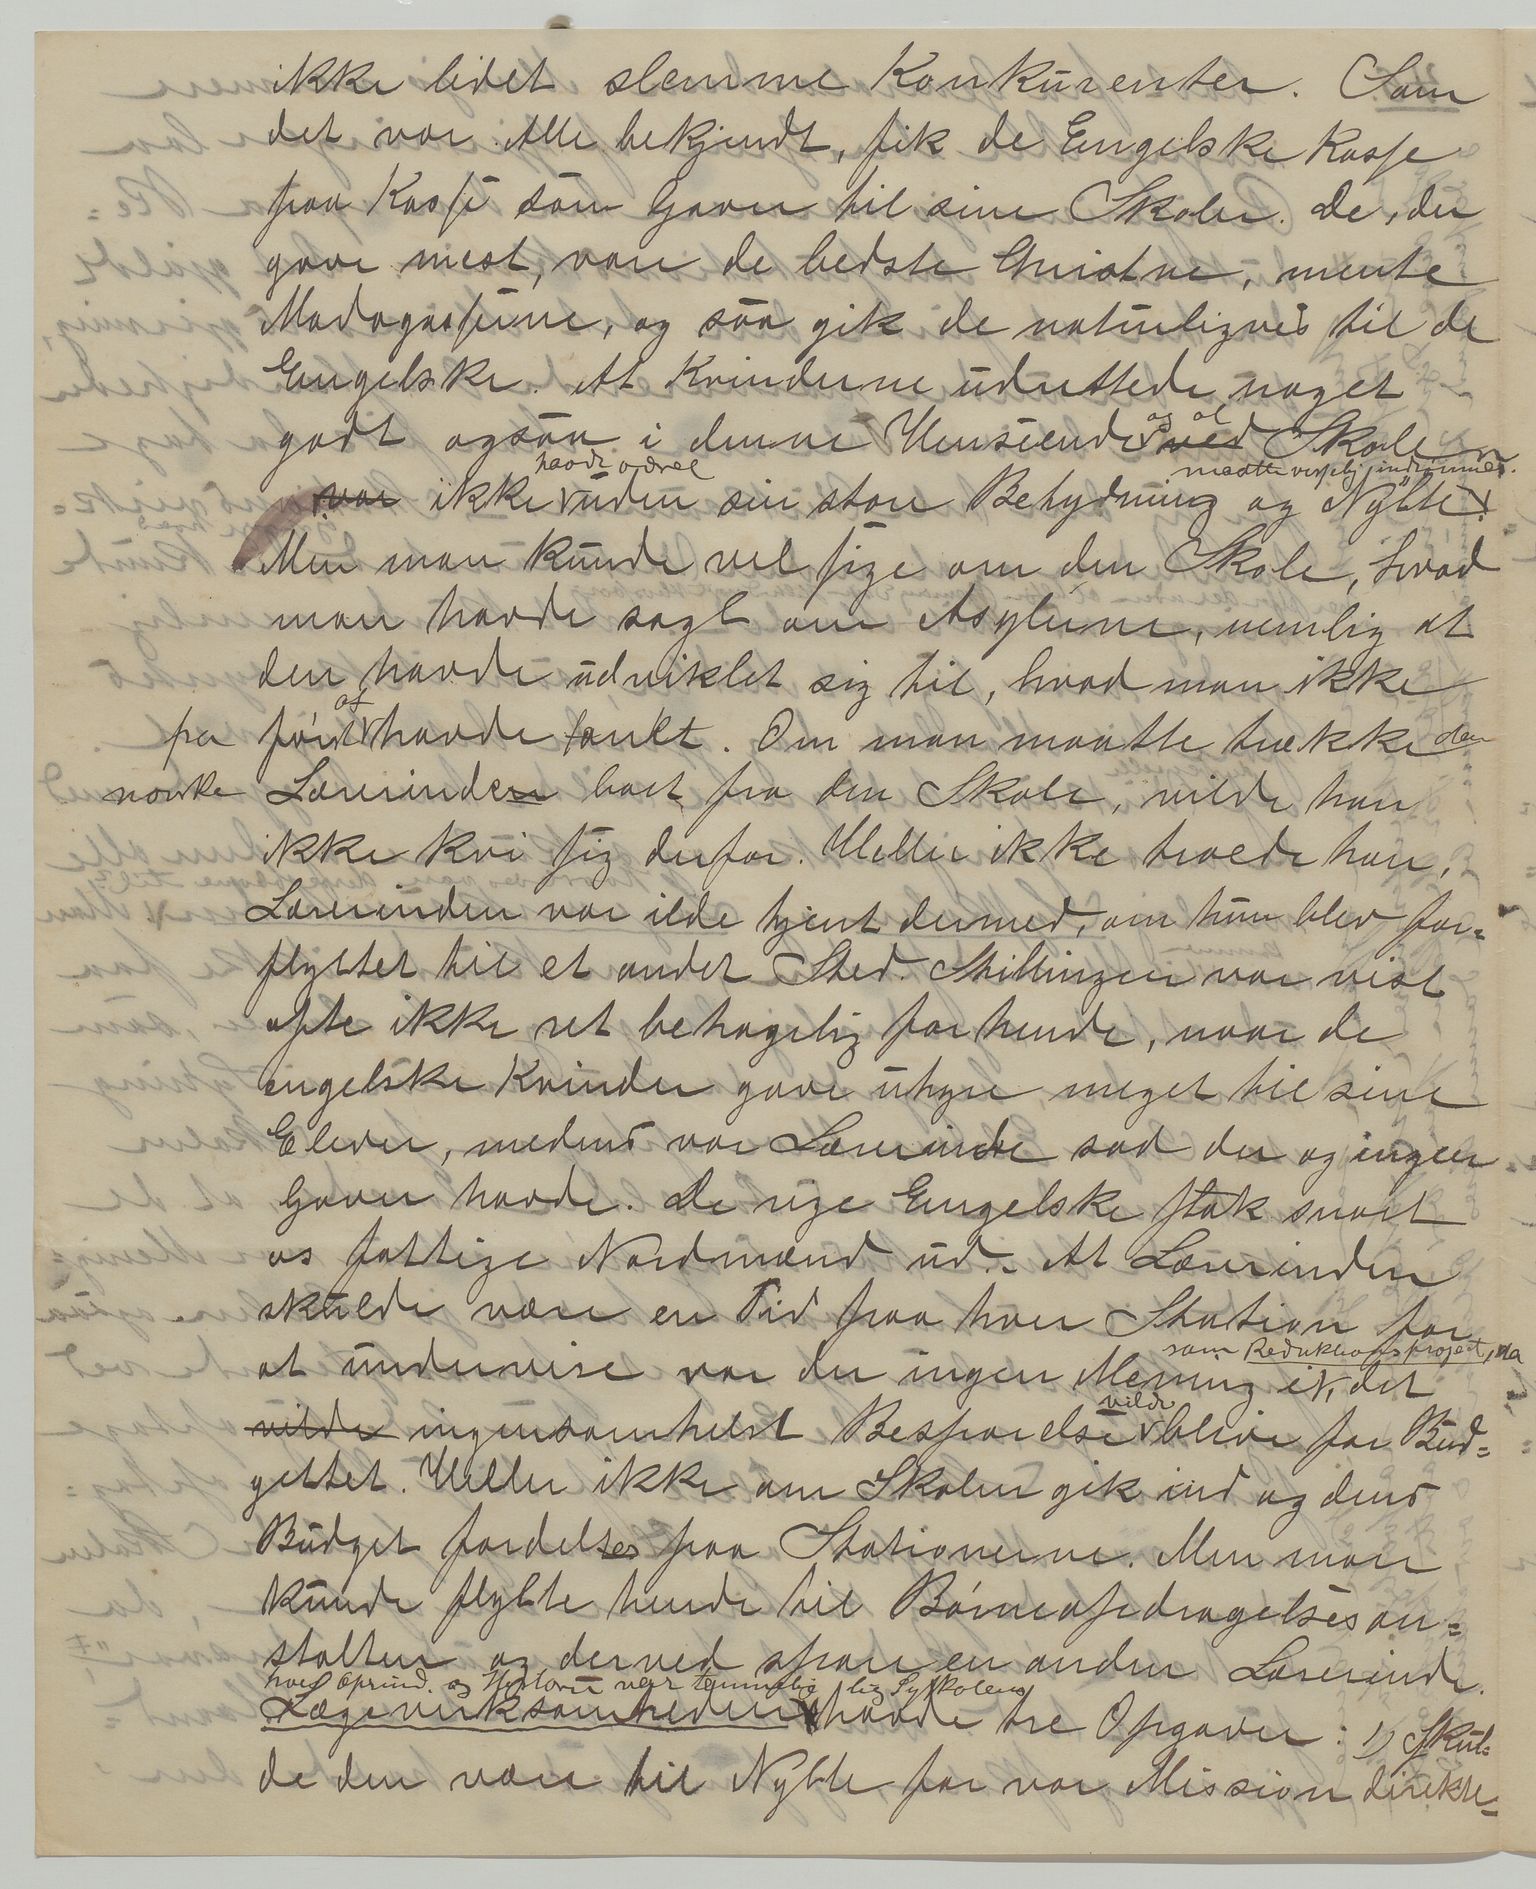 ikke lidet slemme Konkurenter. Som
det var Alle bekjendt, fik de Engelske Kasse
paa Kasse som Gaver til sine Skoler. De, der
gave mest, vare de bedste Christne, mente
Madagasserne, og saa gik de naturligvis til de
Engelske. At Kvinderne udrettede noget
godt ogsaa i denne Henseende og at ved Skolen
var ikke havde været uden sin store Betydning og Nytte maatte vistselig indrømmes.
Men man kunde vel sige om den Skole, hvad
man havde sagt om Asylerne, nemlig at
den havde udviklet sig til, hvad man ikke
fra først af havde tænkt. Om man maatte trække den
norske Lærerinden bort fra den Skole, vilde han
ikke kvi sig derfor. Heller ikke troede han,
Lærerinden var ilde tjent dermed, om hun blev for=
flyttet til et andet Sted. Stillingen var vist
ofte ikke ret behagelig for hende, naar de
engelske Kvinder gave uhyre meget til sine
Elever, medens vor Lærerinde sad der og ingen
Gaver havde. De rige Engelske stak snart
os fattige Nordmænd ud. At Lærerinden
skulde være en Tid paa hver Station for
at undervise var der ingen Mening i, som Reduktionsprojekt, da det
vilde ingensomhelst Besparelse vilde blive for Bud=
gettet. Heller ikke om Skolen gik ind og dens
Budget fordeltes paa Stationerne. Men man
kunde flytte hende til Børneopdragelsesan=
stalten og derved spare en anden Lærerinde.
Lægevirksomheden hvis Oprind. og Historie var temmelig lig Syskolens havde tre Opgaver: 1) Skul=
de den være til Nytte for vor Mission direkte=